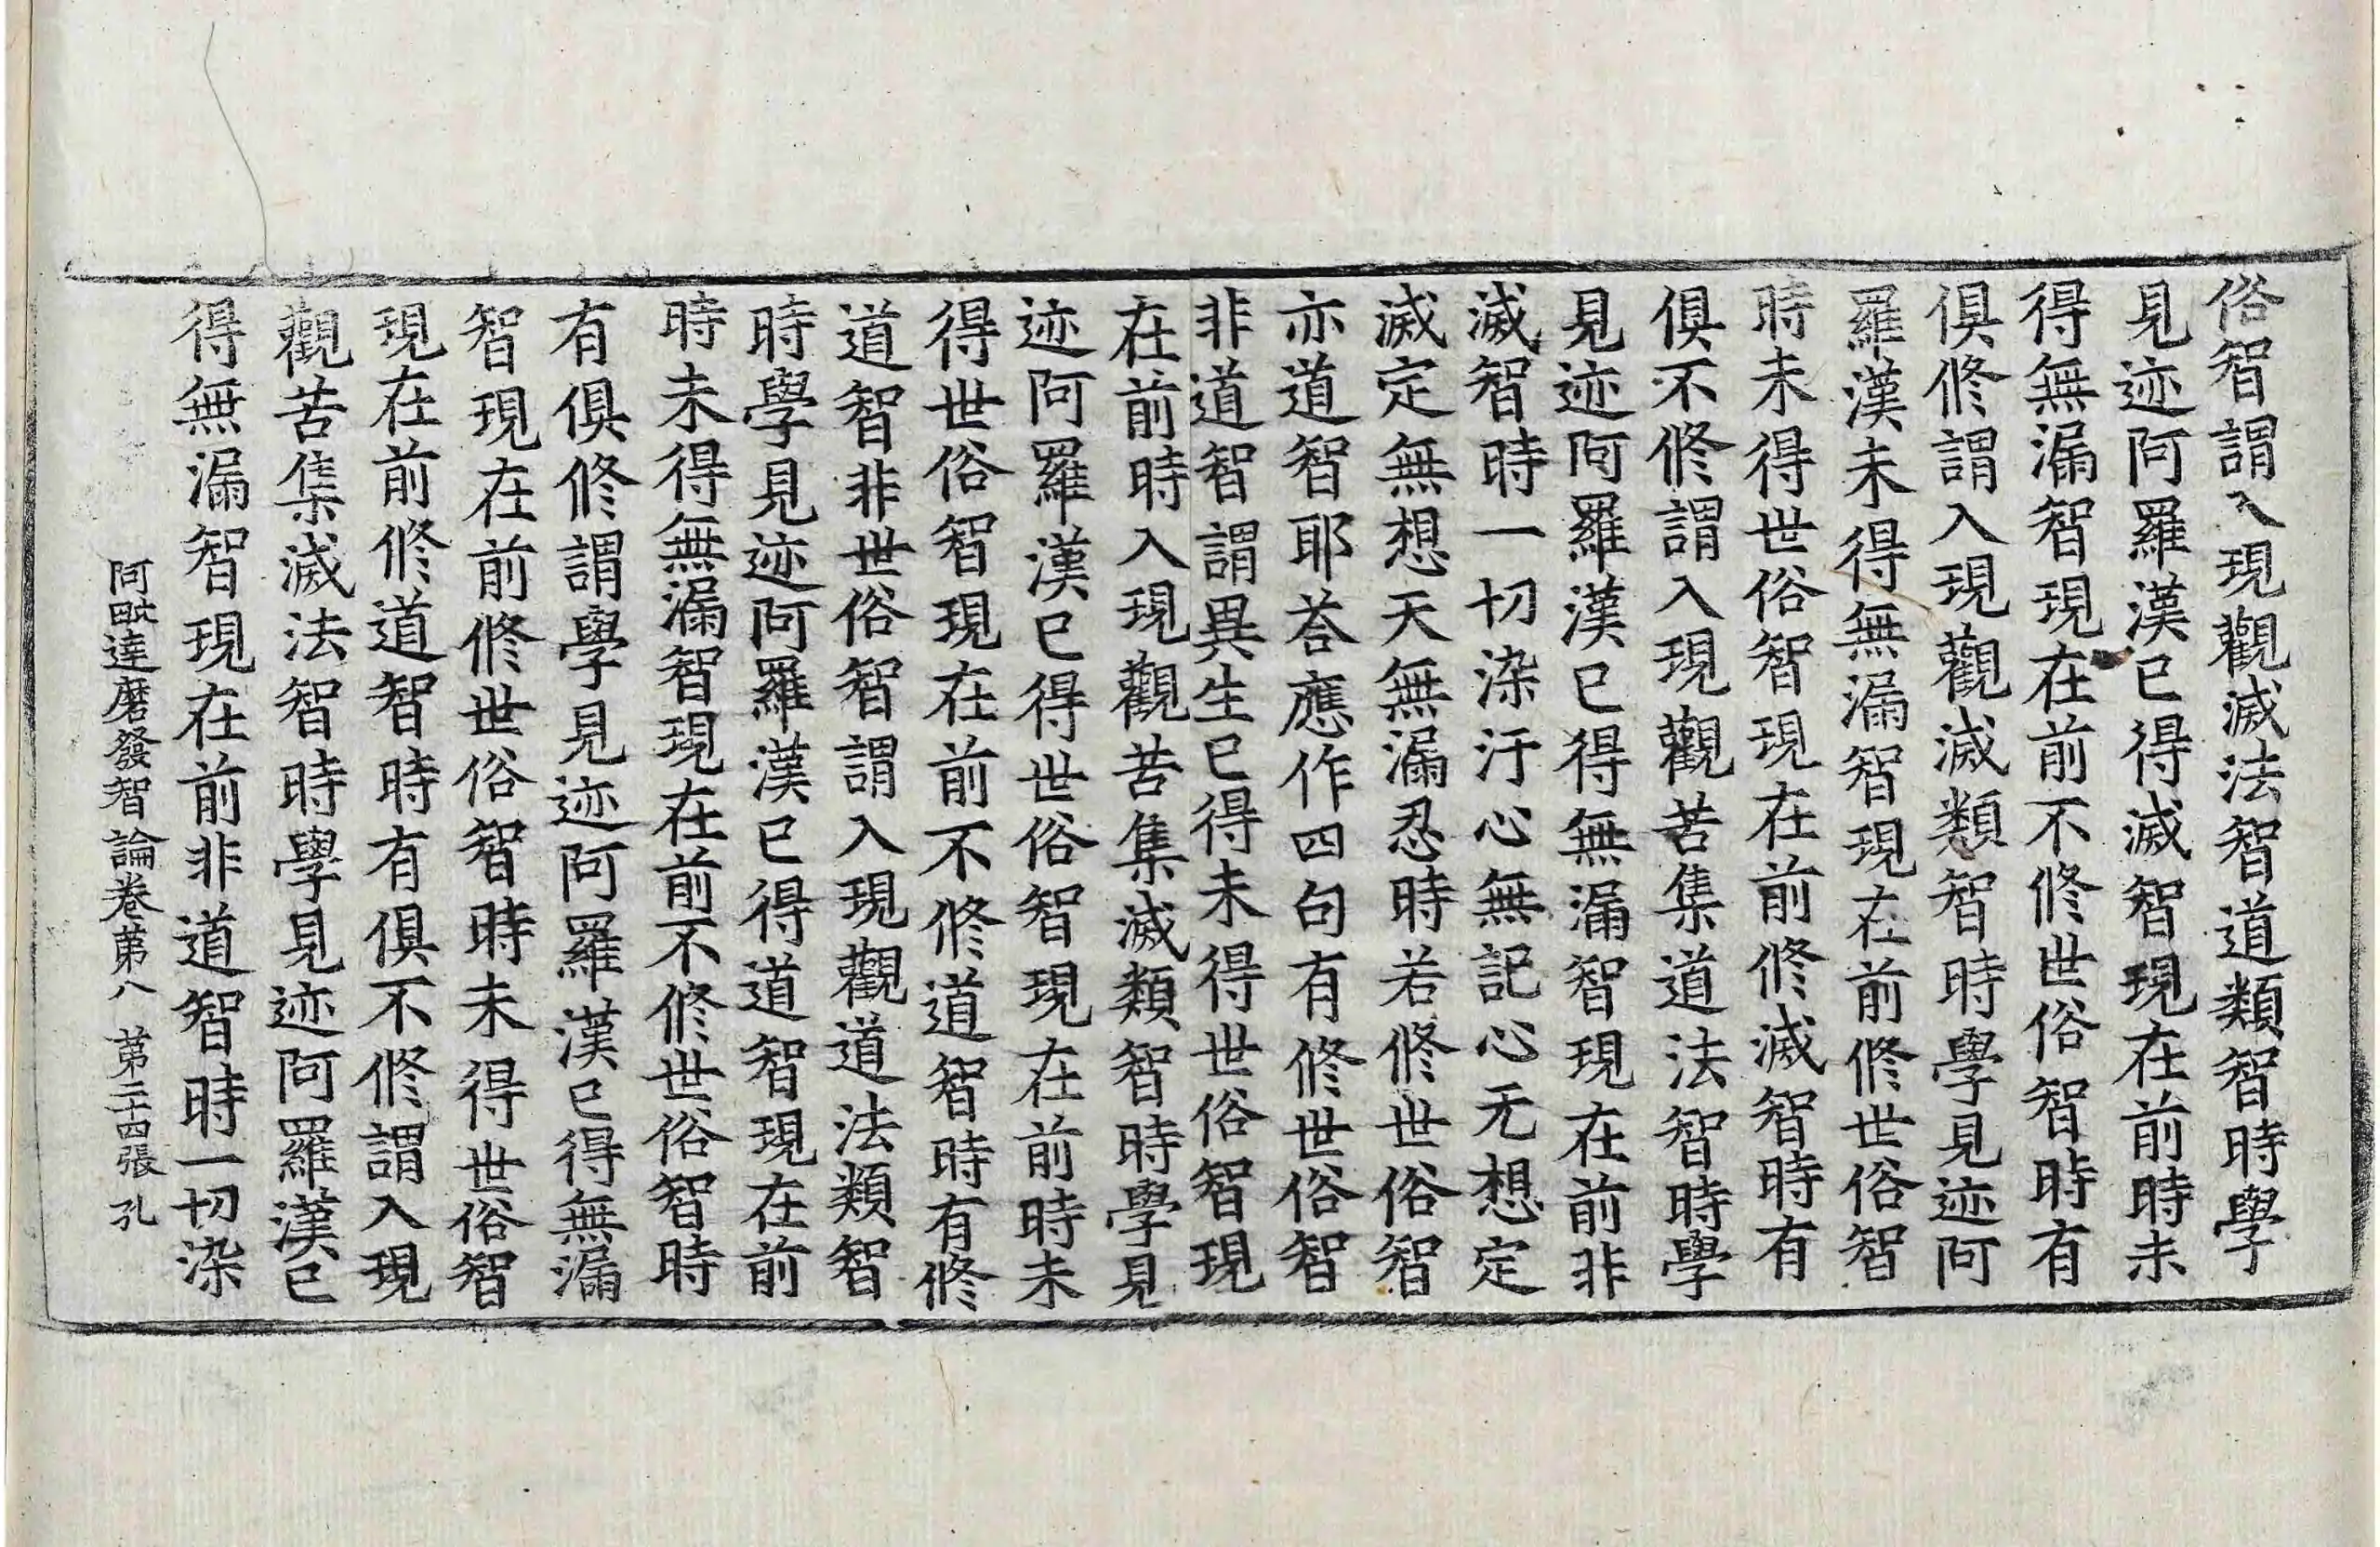 俗智謂入現觀滅法智道類智時學
見迹阿羅漢已得滅智現在前時未
得無漏智現在前不修世俗智時有
俱修謂入現觀滅類智時學見迹阿
羅漢未得無漏智現在前修世俗智
時未得世俗智現在前修滅智時有
俱不修謂入現觀苦集道法智時學
見迹阿羅漢已得無漏智現在前非
滅智時一切染汙心無記心无想定
滅定無想天無漏忍時若修世俗智
亦道智耶荅應作四句有修世俗智
非道智謂異生已得未得世俗智現
在前時入現觀苦集滅類智時學見
迹阿羅漢已得世俗智現在前時未
得世俗智現在前不修道智時有修
道智非世俗智謂入現觀道法類智
時學見迹阿羅漢已得道智現在前
時未得無漏智現在前不修世俗智時
有俱修謂學見迹阿羅漢已得無漏
智現在前修世俗智時未得世俗智
現在前修道智時有俱不修謂入現
觀苦集滅法智時學見迹阿羅漢已
得無漏智現在前非道智時一切染
阿毗達磨發智論卷第八 第二十四張 孔